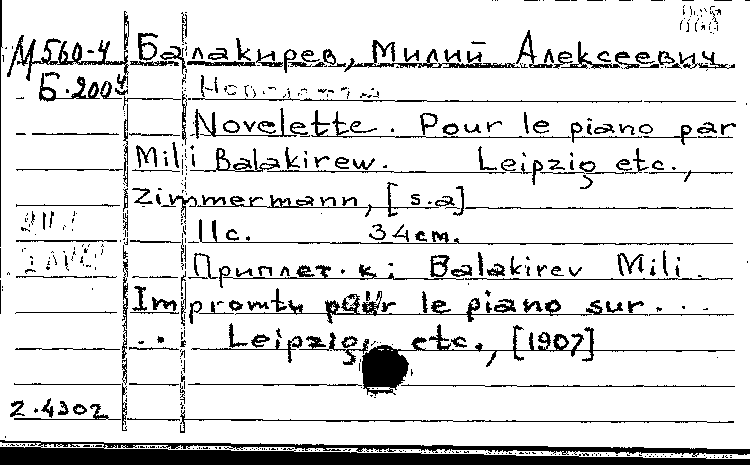 М 560-4 Балакирев, Милий Алексеевич
Б.200ч Новелетта
Novelette. Pour le piano par
Mili Balakirew. Leipzig etc.,
Zimmermann, [s.a]
11с. 34cm.
Приплет. к: Balakirev Mili.
Impromtu pour le piano sur...
.. Leipzig, etc., [1907]
2.4302